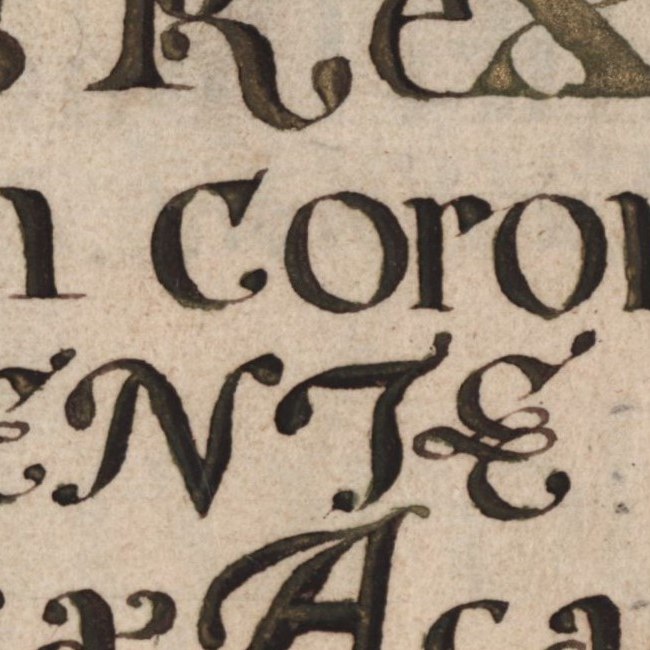 Rex
n coron
ENTE
x Aca